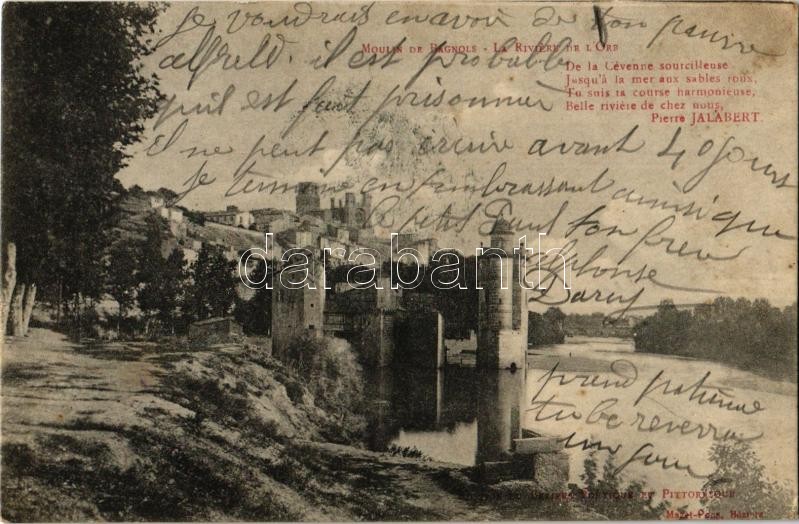 Je voudrais en avoir de ton pauvre
alfreld. il est probable
MOULIN DE BAGNOLS - LA RIVIÈRE DE L'ORB
De la Cévenne sourcilleuse
Jusqu'à la mer aux sables roux,
Tu suis ta course harmonieuse,
Belle rivière de chez nous,
Pierre JALABERT.
qu'il est fait prisonnier
Il ne peut pas écrire avant 40 jours
Je termine en t'embrassant ainsi que
le petit Paul ton frère
Alphonse
darabanth
prend patience
tu le reverras
un jour
ET PITTORESQUE
Béziers